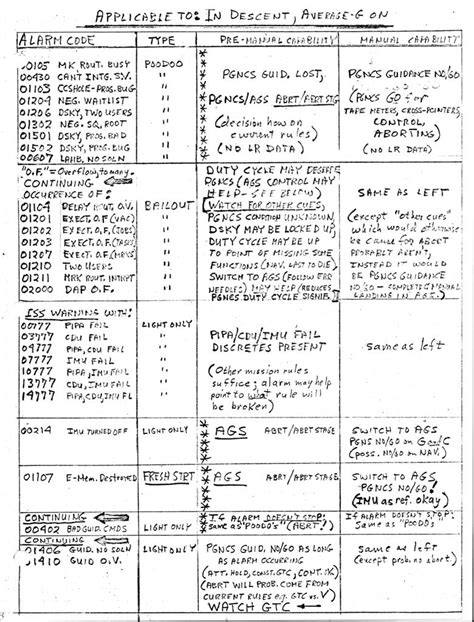 APPLICABLE TO: IN DESCENT, AVERAGE-G ON
ALARM CODE
TYPE
PRE-MANUAL CAPABILITY
MANUAL CAPABILITY
00105 MK ROUT. BUSY
00430 CAN'T INTG. S.V.
01103 CCSHOLE-PROG. BUG
01204 NEG. WAITLIST
01206 DSKY, TWO USERS
01302 NEG. SQ. ROOT
01501 DSKY, PROG. BAD
01502 DSKY, PROG. BUG
00607 LAMB. NO SOLN
POODOO
"
"
"
"
"
"
"
"
PGNCS GUID. LOST,
PGNCS/AGS ABRT/ABRT STG
(decision how on
current rules)
(NO LR DATA)
PGNCS GUIDANCE NO/GO
(PGNCS GO FOR
TAPE METERS, CROSS-POINTERS,
CONTROL,
ABORTING)
(NO LR DATA)
"O.F." = Overflow, too many
CONTINUING
OCCURRENCE OF:
01104 DELAY ROUT. O.V.
01201 EXECT. O.F (VAC)
01202 EXECT. O.F (JOBS)
01203 EXECT. O.F (TASKS)
01207 EXECT. O.V (MRKS)
01210 TWO USERS
01211 MRK ROUT. INTRPT
02000 DAP O.F.
BAILOUT
"
"
"
"
"
"
"
DUTY CYCLE MAY DEGRADE
PGNCS (AGS CONTROL MAY
HELP - SEE BELOW)
WATCH FOR OTHER CUES,
PGNCS CONDITION UNKNOWN,
DSKY MAY BE LOCKED UP,
DUTY CYCLE MAY BE UP
TO POINT OF MISSING SOME
FUNCTIONS (NAV. LAST TO DIE)
SWITCH TO AGS (FOLLOW ERR
NEEDLES) MAY HELP (REDUCES
PGNCS DUTY CYCLE SIGNIF.)
SAME AS LEFT
(except "other cues"
which would otherwise
be cause for ABORT
PROBABLY AREN'T,
INSTEAD IT WOULD
BE PGNCS GUIDANCE
NO/GO - COMPLETE MANUAL
LANDING IN AGS.)
ISS WARNING WITH:
00777 PIPA FAIL
03777 CDU FAIL
04777 PIPA, CDU FAIL
07777 IMU FAIL
10777 PIPA, IMU FAIL
13777 CDU, IMU FAIL
14777 PIPA, CDU, IMU FL
LIGHT ONLY
"
"
"
"
"
"
PIPA/CDU/IMU FAIL
DISCRETES PRESENT
(Other mission rules
suffice; alarm may help
point to what rule will
be broken)
same as left
00214 IMU TURNED OFF
LIGHT ONLY
AGS ABRT/ABRT STAGE
SWITCH TO AGS
PGNS NO/GO on G and C
(poss. NO/GO on NAV.)
01107 E-Mem. Destroyed
FRESH STRT
AGS ABRT/ABRT STAGE
SWITCH TO AGS
PGNCS NO/GO!
(IMU as ref. okay)
CONTINUING
00402 BAD GUID. CMDS
LIGHT ONLY
If ALARM DOESN'T STOP:
Same as "POODOO'S" (ABRT!)
If ALARM DOESN'T STOP:
Same as "POODOO'S
CONTINUING
01406 GUID. NO SOLN
01410 GUID O.V.
LIGHT ONLY
"
PGNCS GUID. NO/GO AS LONG
AS ALARM OCCURRING
(ATT. HOLD, CONST. GTC, CONT. S.V.)
(ABRT WILL PROB. COME FROM
CURRENT RULES e.g. GTC vs. V)
WATCH GTC
same as left
(except prob. no abort)